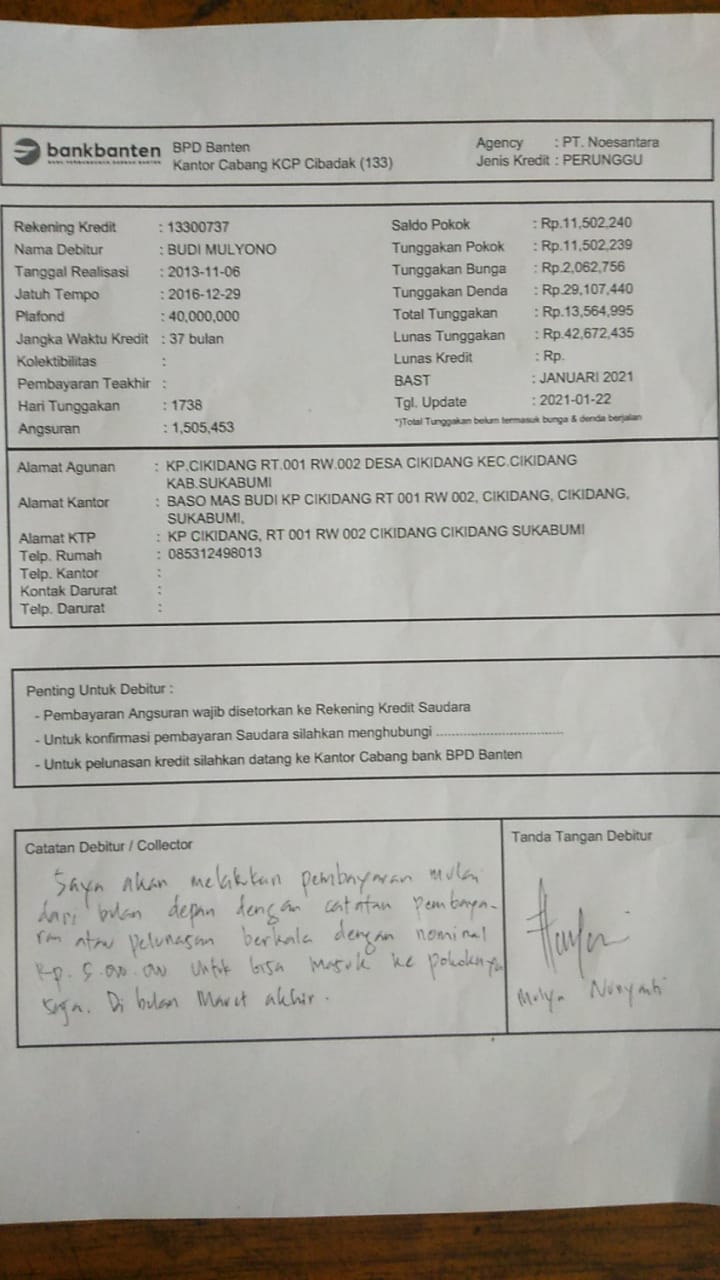 bankbanten
BPD Banten
Kantor Cabang KCP Cibadak (133)
Agency : PT. Noesantara
Jenis Kredit : PERUNGGU
Rekening Kredit : 13300737
Nama Debitur : BUDI MULYONO
Tanggal Realisasi : 2013-11-06
Jatuh Tempo : 2016-12-29
Plafond : 40,000,000
Jangka Waktu Kredit : 37 bulan
Kolektibilitas :
Pembayaran Teakhir :
Hari Tunggakan : 1738
Angsuran : 1,505,453
Saldo Pokok : Rp.11,502,240
Tunggakan Pokok : Rp.11,502,239
Tunggakan Bunga : Rp.2,062,756
Tunggakan Denda : Rp.29,107,440
Total Tunggakan : Rp.13,564,995
Lunas Tunggakan : Rp.42,672,435
Lunas Kredit : Rp.
BAST : JANUARI 2021
Tgl. Update : 2021-01-22
*)Total Tunggakan belum termasuk bunga & denda berjalan
Alamat Agunan : KP.CIKIDANG RT.001 RW.002 DESA CIKIDANG KEC.CIKIDANG
KAB.SUKABUMI
Alamat Kantor : BASO MAS BUDI KP CIKIDANG RT 001 RW 002, CIKIDANG, CIKIDANG,
SUKABUMI,
Alamat KTP : KP CIKIDANG, RT 001 RW 002 CIKIDANG CIKIDANG SUKABUMI
Telp. Rumah : 085312498013
Telp. Kantor :
Kontak Darurat :
Telp. Darurat :
Penting Untuk Debitur :
- Pembayaran Angsuran wajib disetorkan ke Rekening Kredit Saudara
- Untuk konfirmasi pembayaran Saudara silahkan menghubungi ................................
- Untuk pelunasan kredit silahkan datang ke Kantor Cabang bank BPD Banten
Catatan Debitur / Collector
Saya akan melakukan pembayaran mulai
dari bulan depan dengan catatan pembaya-
ran atau pelunasan berkala dengan nominal
Rp. 5.00.00 untuk bisa masuk ke pokoknya
saja. Di bulan Maret akhir.
Tanda Tangan Debitur
Mulya